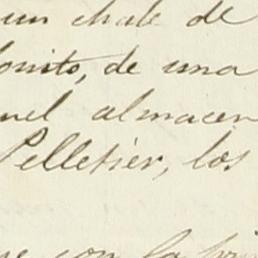 un chale de
bonito, de una
uel almacen
Pelletier, los
con la pri